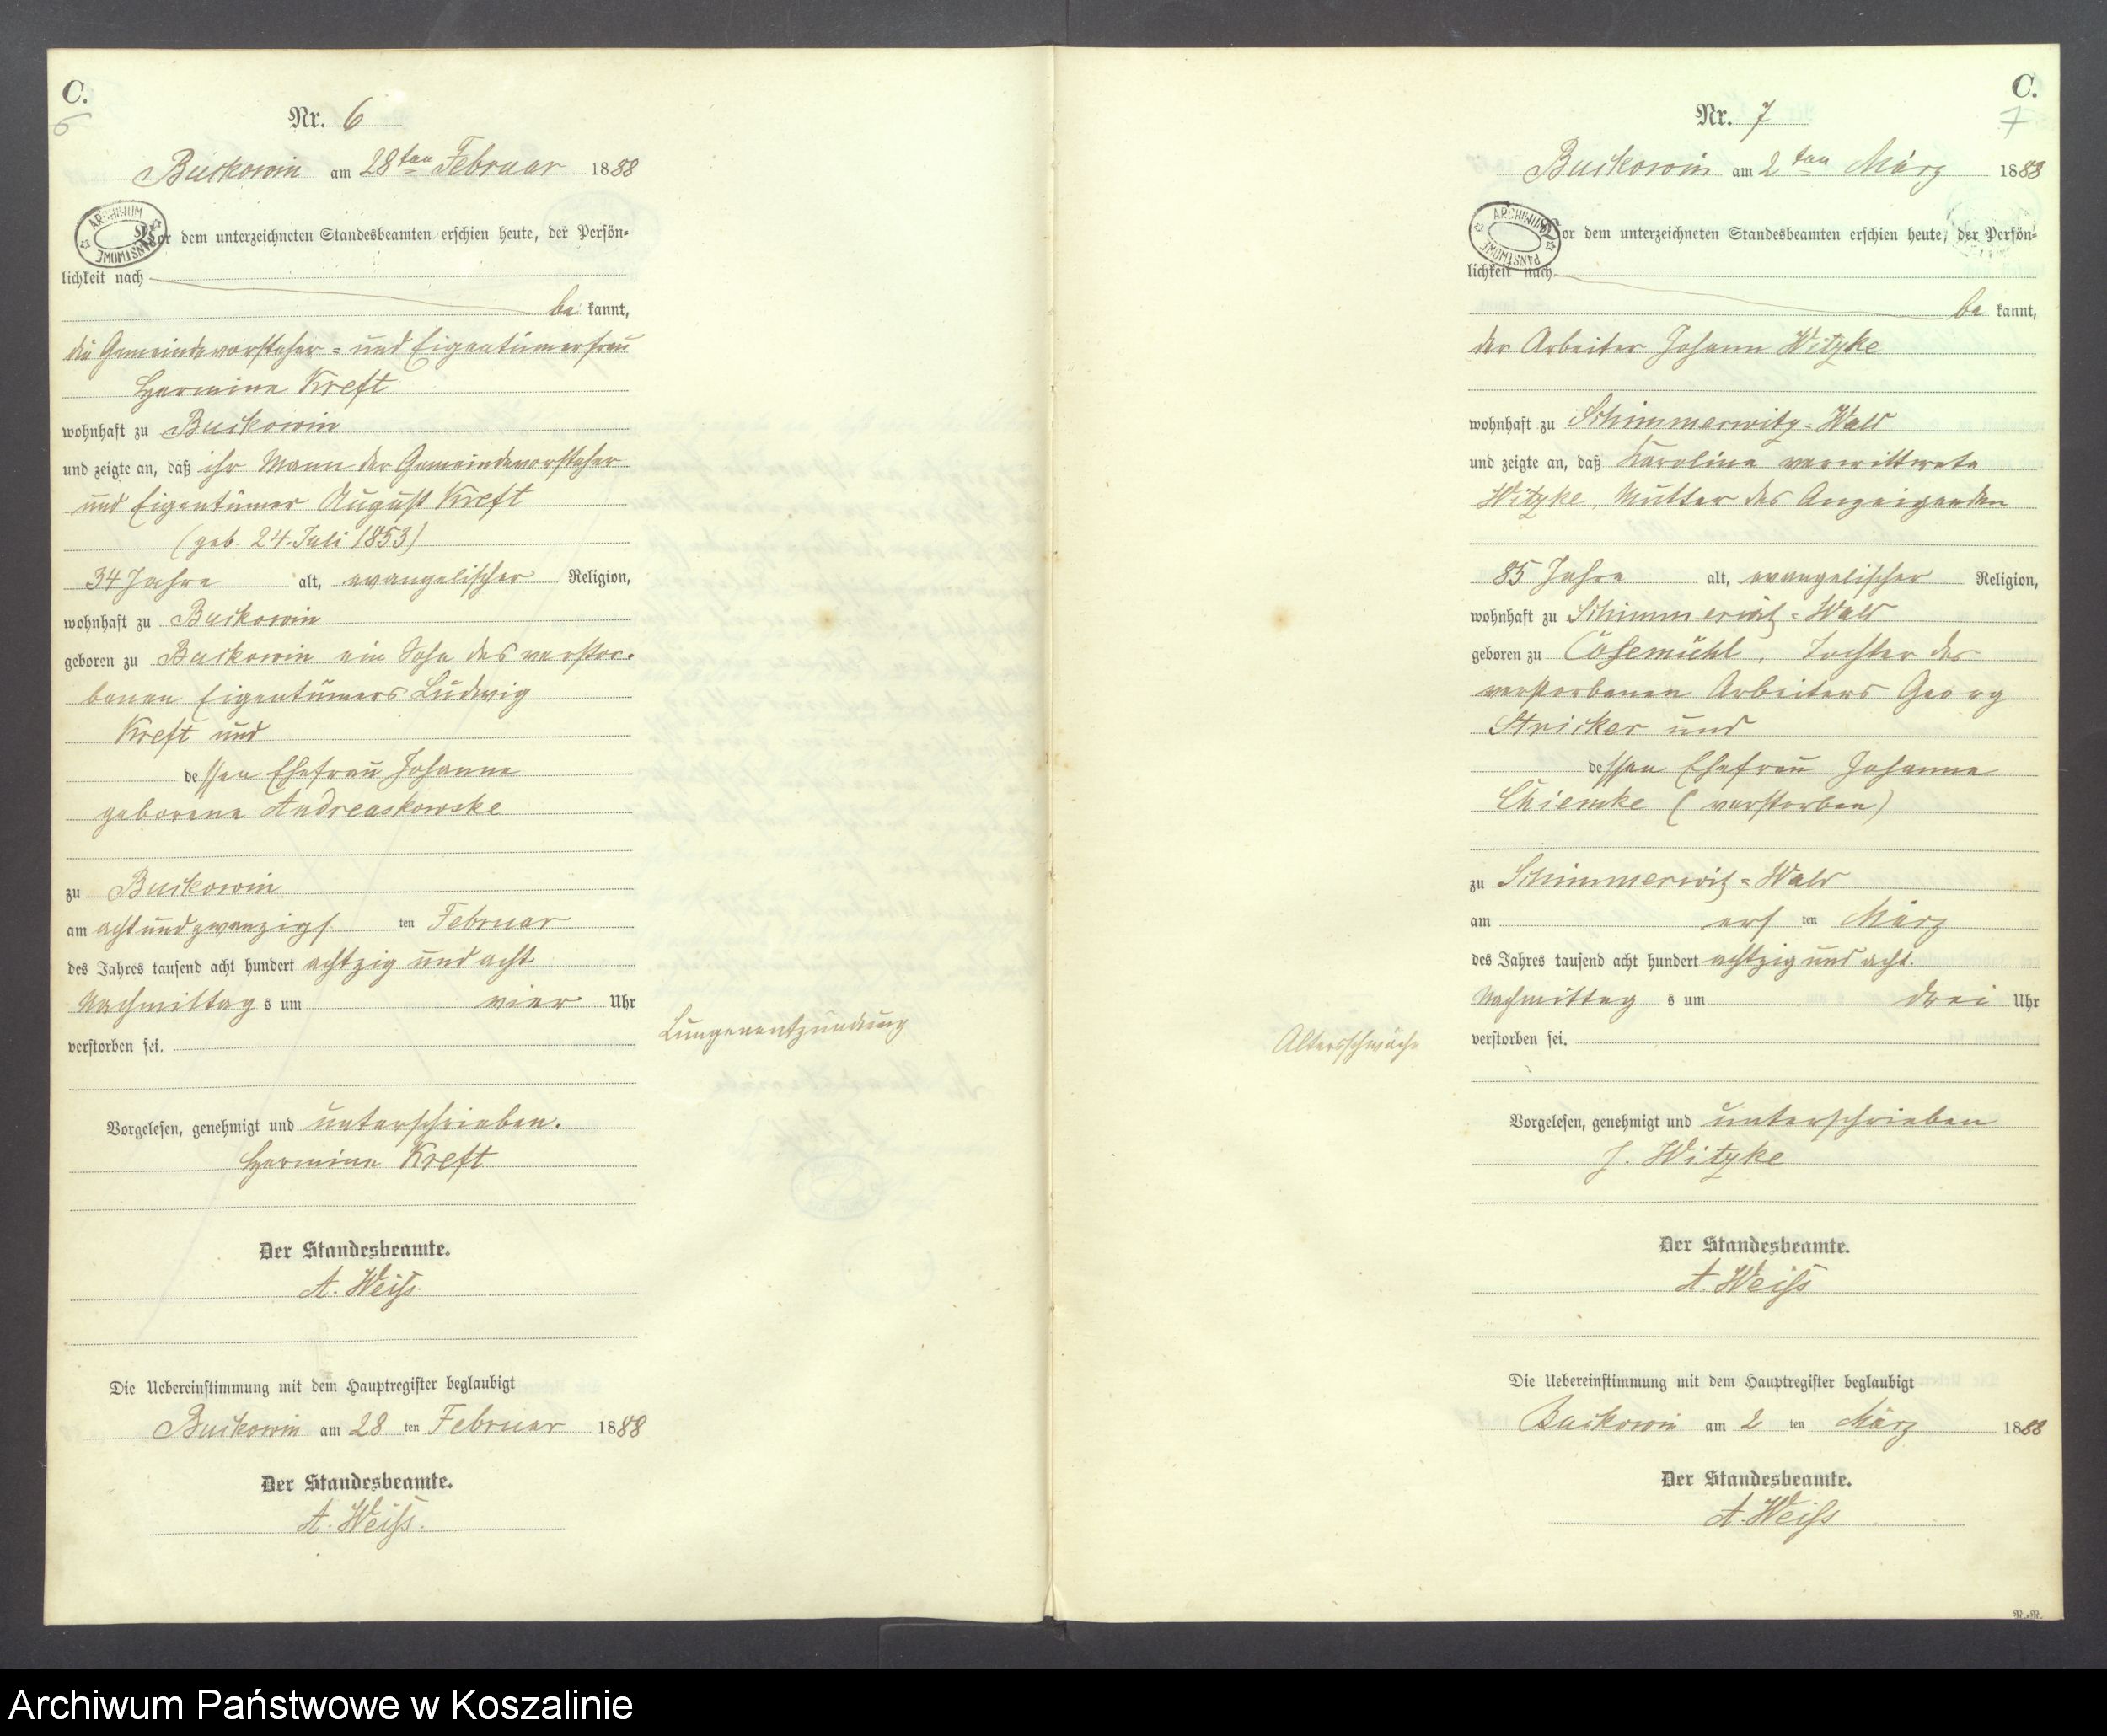 C.
6
Nr. 6
Buckowin am 28ten Februar 1888
ARCHIWUM PAŃSTWOWE
Vor dem unterzeichneten Standesbeamten erschien heute, der Persön-
lichkeit nach
be kannt,
die Gemeindevorsteher- und Eigentümerfrau
Hermine Kreft
wohnhaft zu Buckowin
und zeigte an, daß ihr Mann der Gemeindevorsteher
und Eigentümer August Kreft
(geb. 24. Juli 1853)
34 Jahre alt, evangelischer Religion,
wohnhaft zu Buckowin
geboren zu Buckowin ein Sohn des verstor-
benen Eigentümers Ludwig
Kreft und
dessen Ehefrau Johanne
geborene Andreaskowske
zu Buckowin
am achtundzwanzigsten Februar
des Jahres tausend acht hundert achtzig und acht
Nachmittags um vier Uhr
verstorben sei.
Lungenentzündung
Vorgelesen, genehmigt und unterschrieben.
Hermine Kreft
Der Standesbeamte.
A. Weiß.
Die Uebereinstimmung mit dem Hauptregister beglaubigt
Buckowin am 28 ten Februar 1888
Der Standesbeamte.
A. Weiß.
C.
7
Nr. 7
Buckowin am 2ten März 1888
ARCHIWUM PAŃSTWOWE
Vor dem unterzeichneten Standesbeamten erschien heute, der Persön-
lichkeit nach
be kannt,
der Arbeiter Johann Witzke
wohnhaft zu Schimmerwitz-Wald
und zeigte an, daß Karoline verwittwete
Witzke, Mutter des Anzeigenden
85 Jahre alt, evangelischer Religion,
wohnhaft zu Schimmerwitz-Wald
geboren zu Cosemühl, Tochter des
verstorbenen Arbeiters Georg
Stricker und
dessen Ehefrau Johanne
(verstorben)
zu Schimmerwitz-Wald
am ersten März
des Jahres tausend acht hundert achtzig und acht.
Nachmittags um drei Uhr
verstorben sei.
Altersschwäche
Vorgelesen, genehmigt und unterschrieben
J. Witzke
Der Standesbeamte.
A. Weiß
Die Uebereinstimmung mit dem Hauptregister beglaubigt
Buckowin am 2 ten März 1888
Der Standesbeamte.
A. Weiß
Archiwum Państwowe w Koszalinie